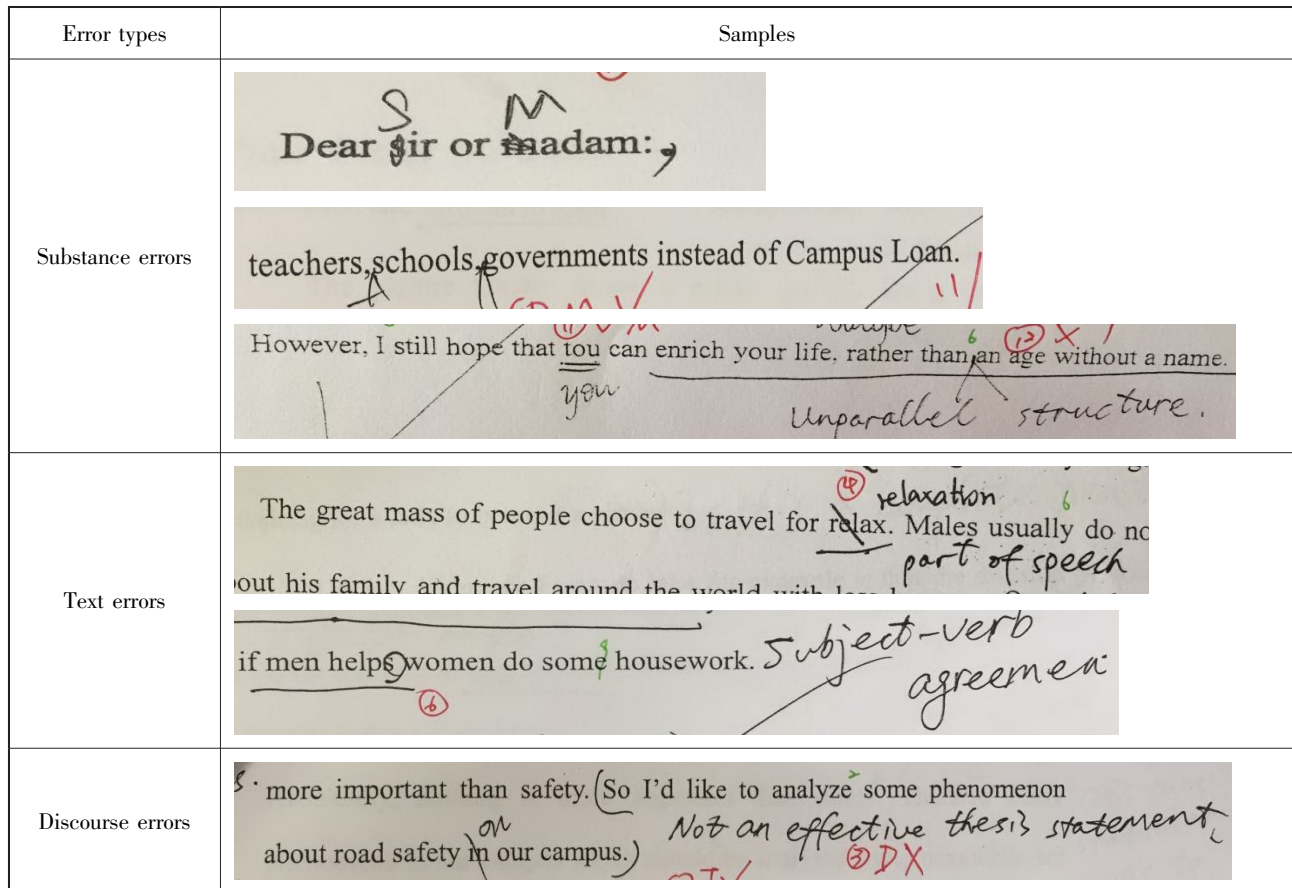 Error types
Samples
Substance errors
S M
Dear sir or madam:,
teachers,schools,governments instead of Campus Loan.
11
However, I still hope that tou can enrich your life, rather than an age without a name.
6
12 X
you
Unparallel structure.
Text errors
4 relaxation 6
The great mass of people choose to travel for relax. Males usually do
part of speech
out his family and travel around the world with
if men helps women do some housework. Subject-verb
agreemen
6
Discourse errors
more important than safety. (So I'd like to analyze some phenomenon
2
on Not an effective thesis statement.
about road safety in our campus.)
3 DX